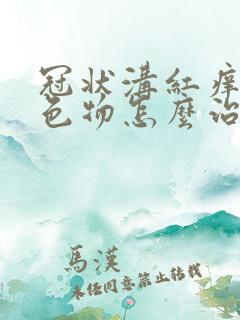 冠状溝紅痒
色物怎麼治
馬漢
未经同意禁止转载